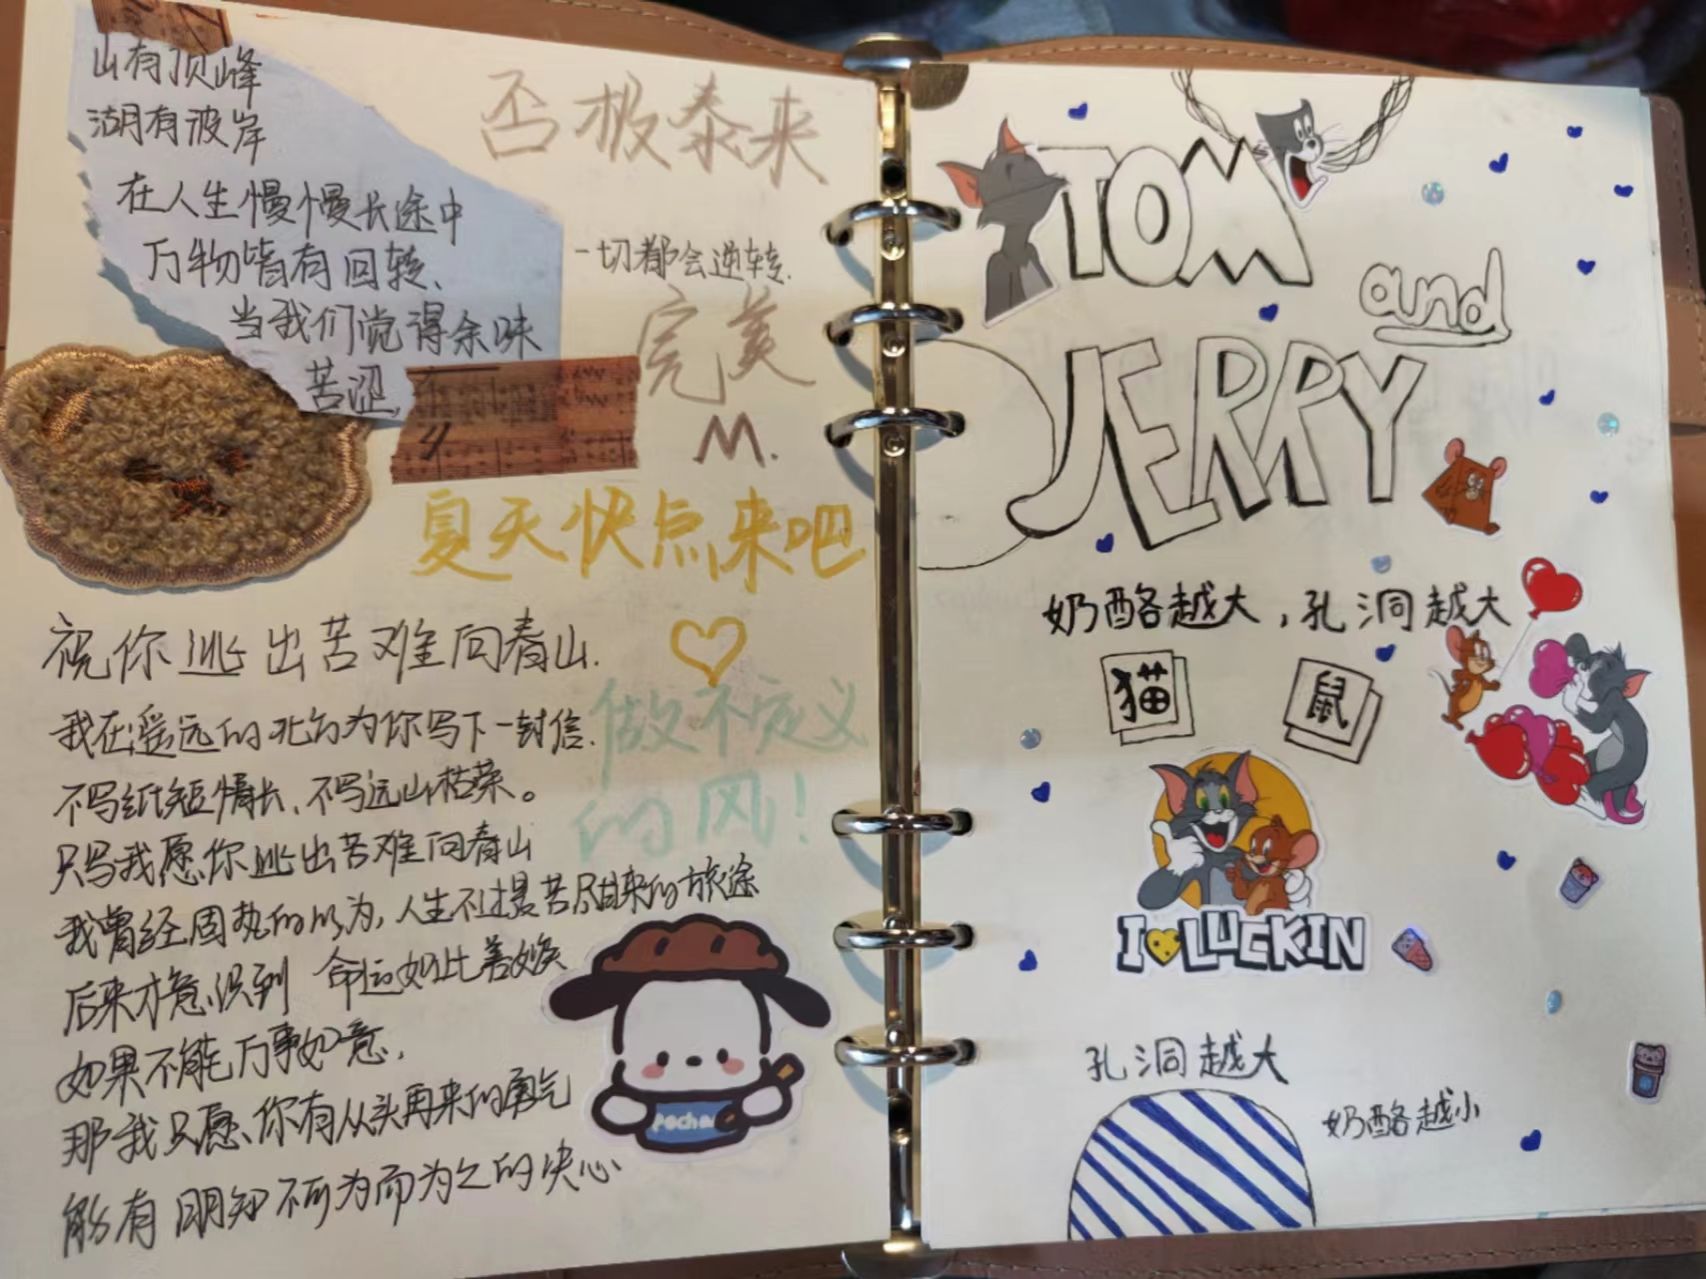 山有顶峰
湖有彼岸
在人生慢慢长途中
万物皆有回转、
当我们觉得余味
苦涩,
否极泰来
一切都会逆转.
完美
M.
夏天快点来吧
祝你逃出苦难向春山.
我在遥远的北方为你写下一封信.
不写纸短情长、不写远山枯荣。
只写我愿你逃出苦难向春山
我曾经固执的以为,人生不过是苦尽甘来的旅途
后来才意识到 命运如此善变
如果不能万事如意,
那我只愿你有从头再来的勇气
能有明知不可为而为之的决心
做不定义
的风!
Pochac
TOM
and
JERRY
奶酪越大,孔洞越大
猫
鼠
I LUCKIN
孔洞越大
奶酪越小